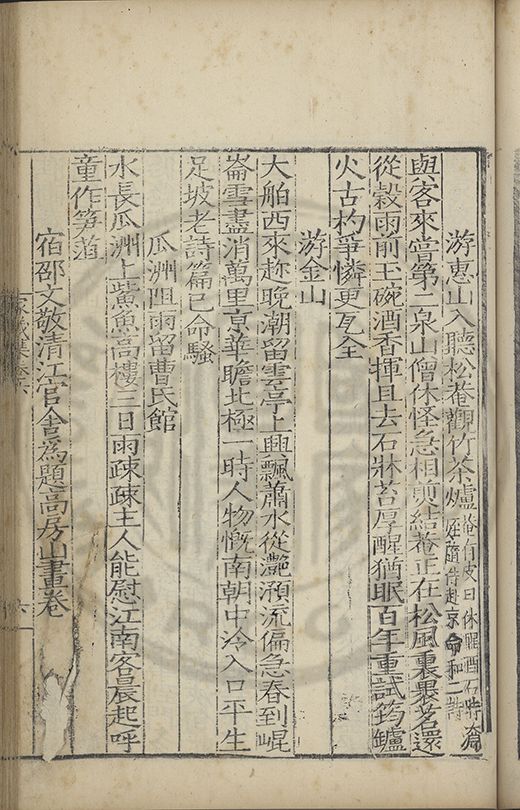 游惠山入聽松菴觀竹茶爐 菴有皮日休醒酒石時 赴京命和二詩
與客來嘗第二泉山僧休怪急相煎結菴正在松風裏裹茗還
從穀雨前玉碗酒香揮且去石牀苔厚醒猶眠百年重試筠鑪
火古杓爭憐更瓦全
游金山
大舶西來趂晚潮留雲亭上興飄蕭水從灔澦流偏急春到崐
崙雪盡消萬里京華瞻北極一時人物慨南朝中泠入口平生
足坡老詩篇已命騷
瓜洲阻雨留曹氏館
水長瓜洲上鮆魚高樓三日雨疎疎主人能慰江南客晨起呼
童作笋葅
宿邵文敬清江官舍為題高房山畫卷
家藏集卷六
六